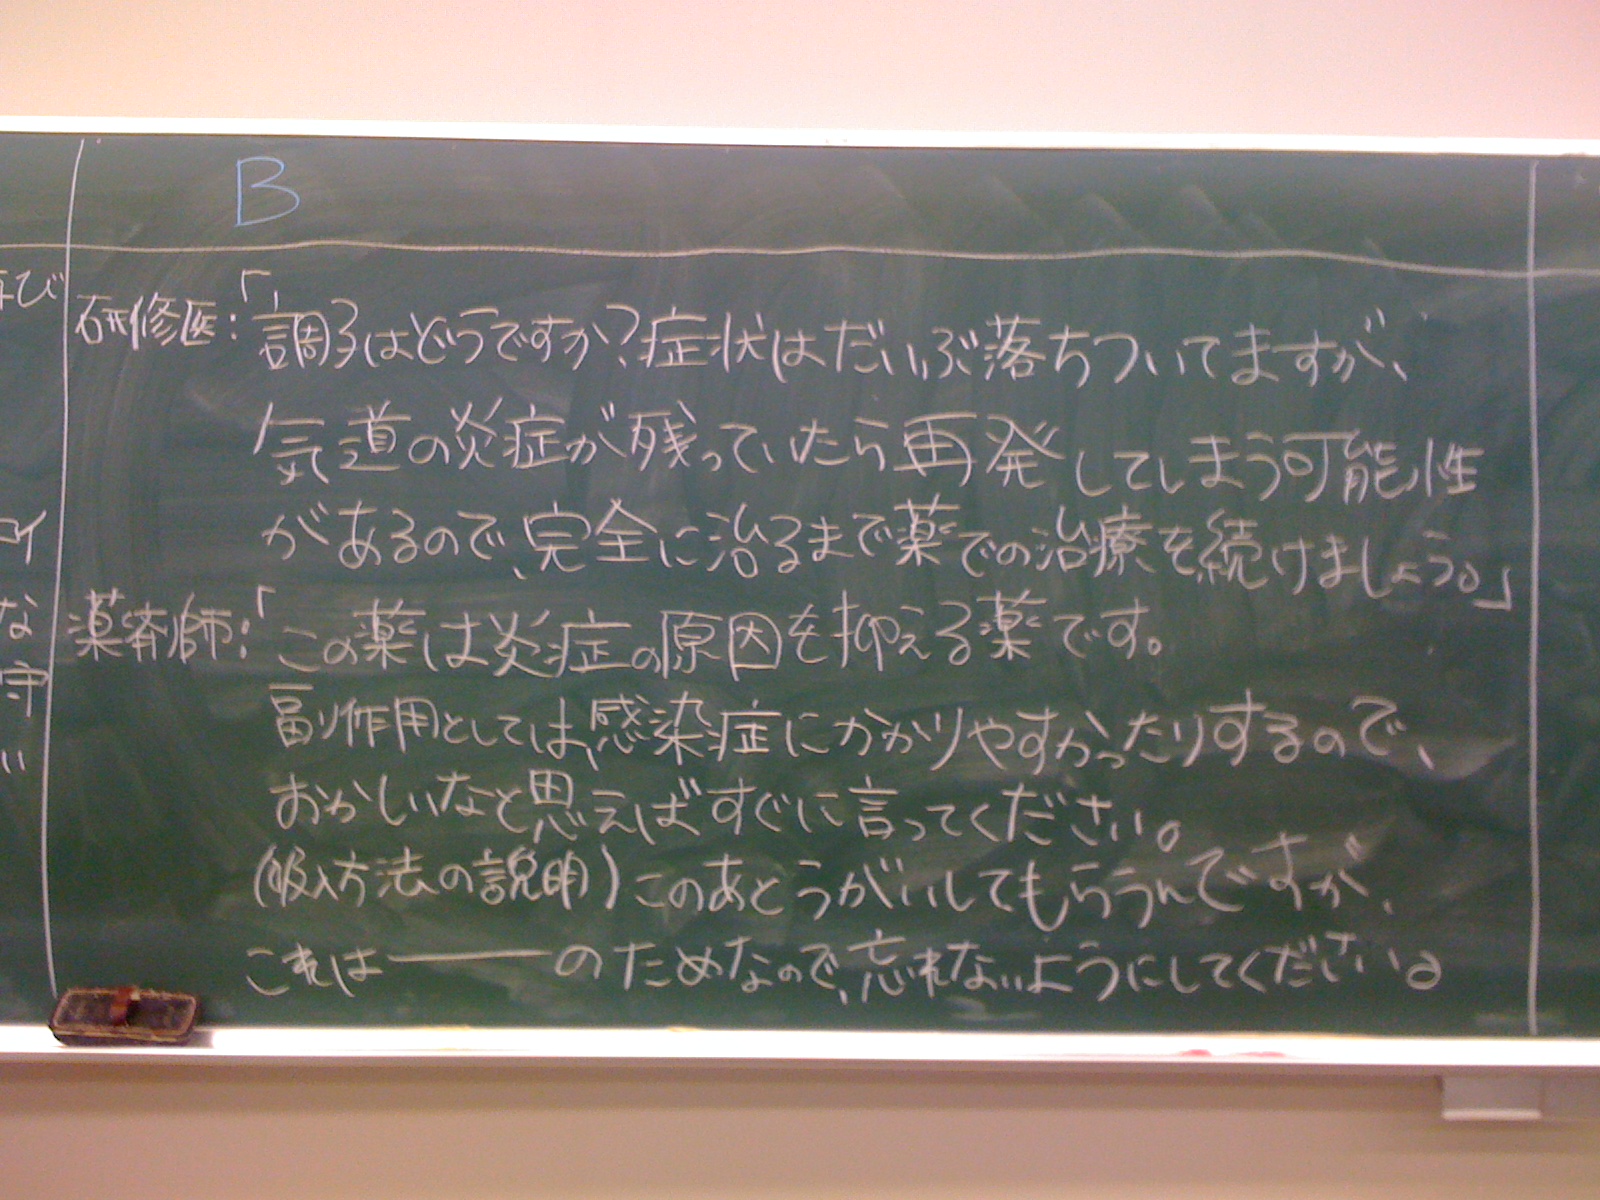 B
研修医：「調子はどうですか？症状はだいぶ落ちついてますが、
気道の炎症が残っていたら再発してしまう可能性
があるので、完全に治るまで薬での治療を続けましょう。」
薬剤師：「この薬は炎症の原因を抑える薬です。
副作用としては、感染症にかかりやすかったりするので、
おかしいなと思えばすぐに言ってください。
(吸入方法の説明)このあとうがいしてもらうんですが、
これは――のためなので、忘れないようにしてください。
再び
コイ
な
守
い